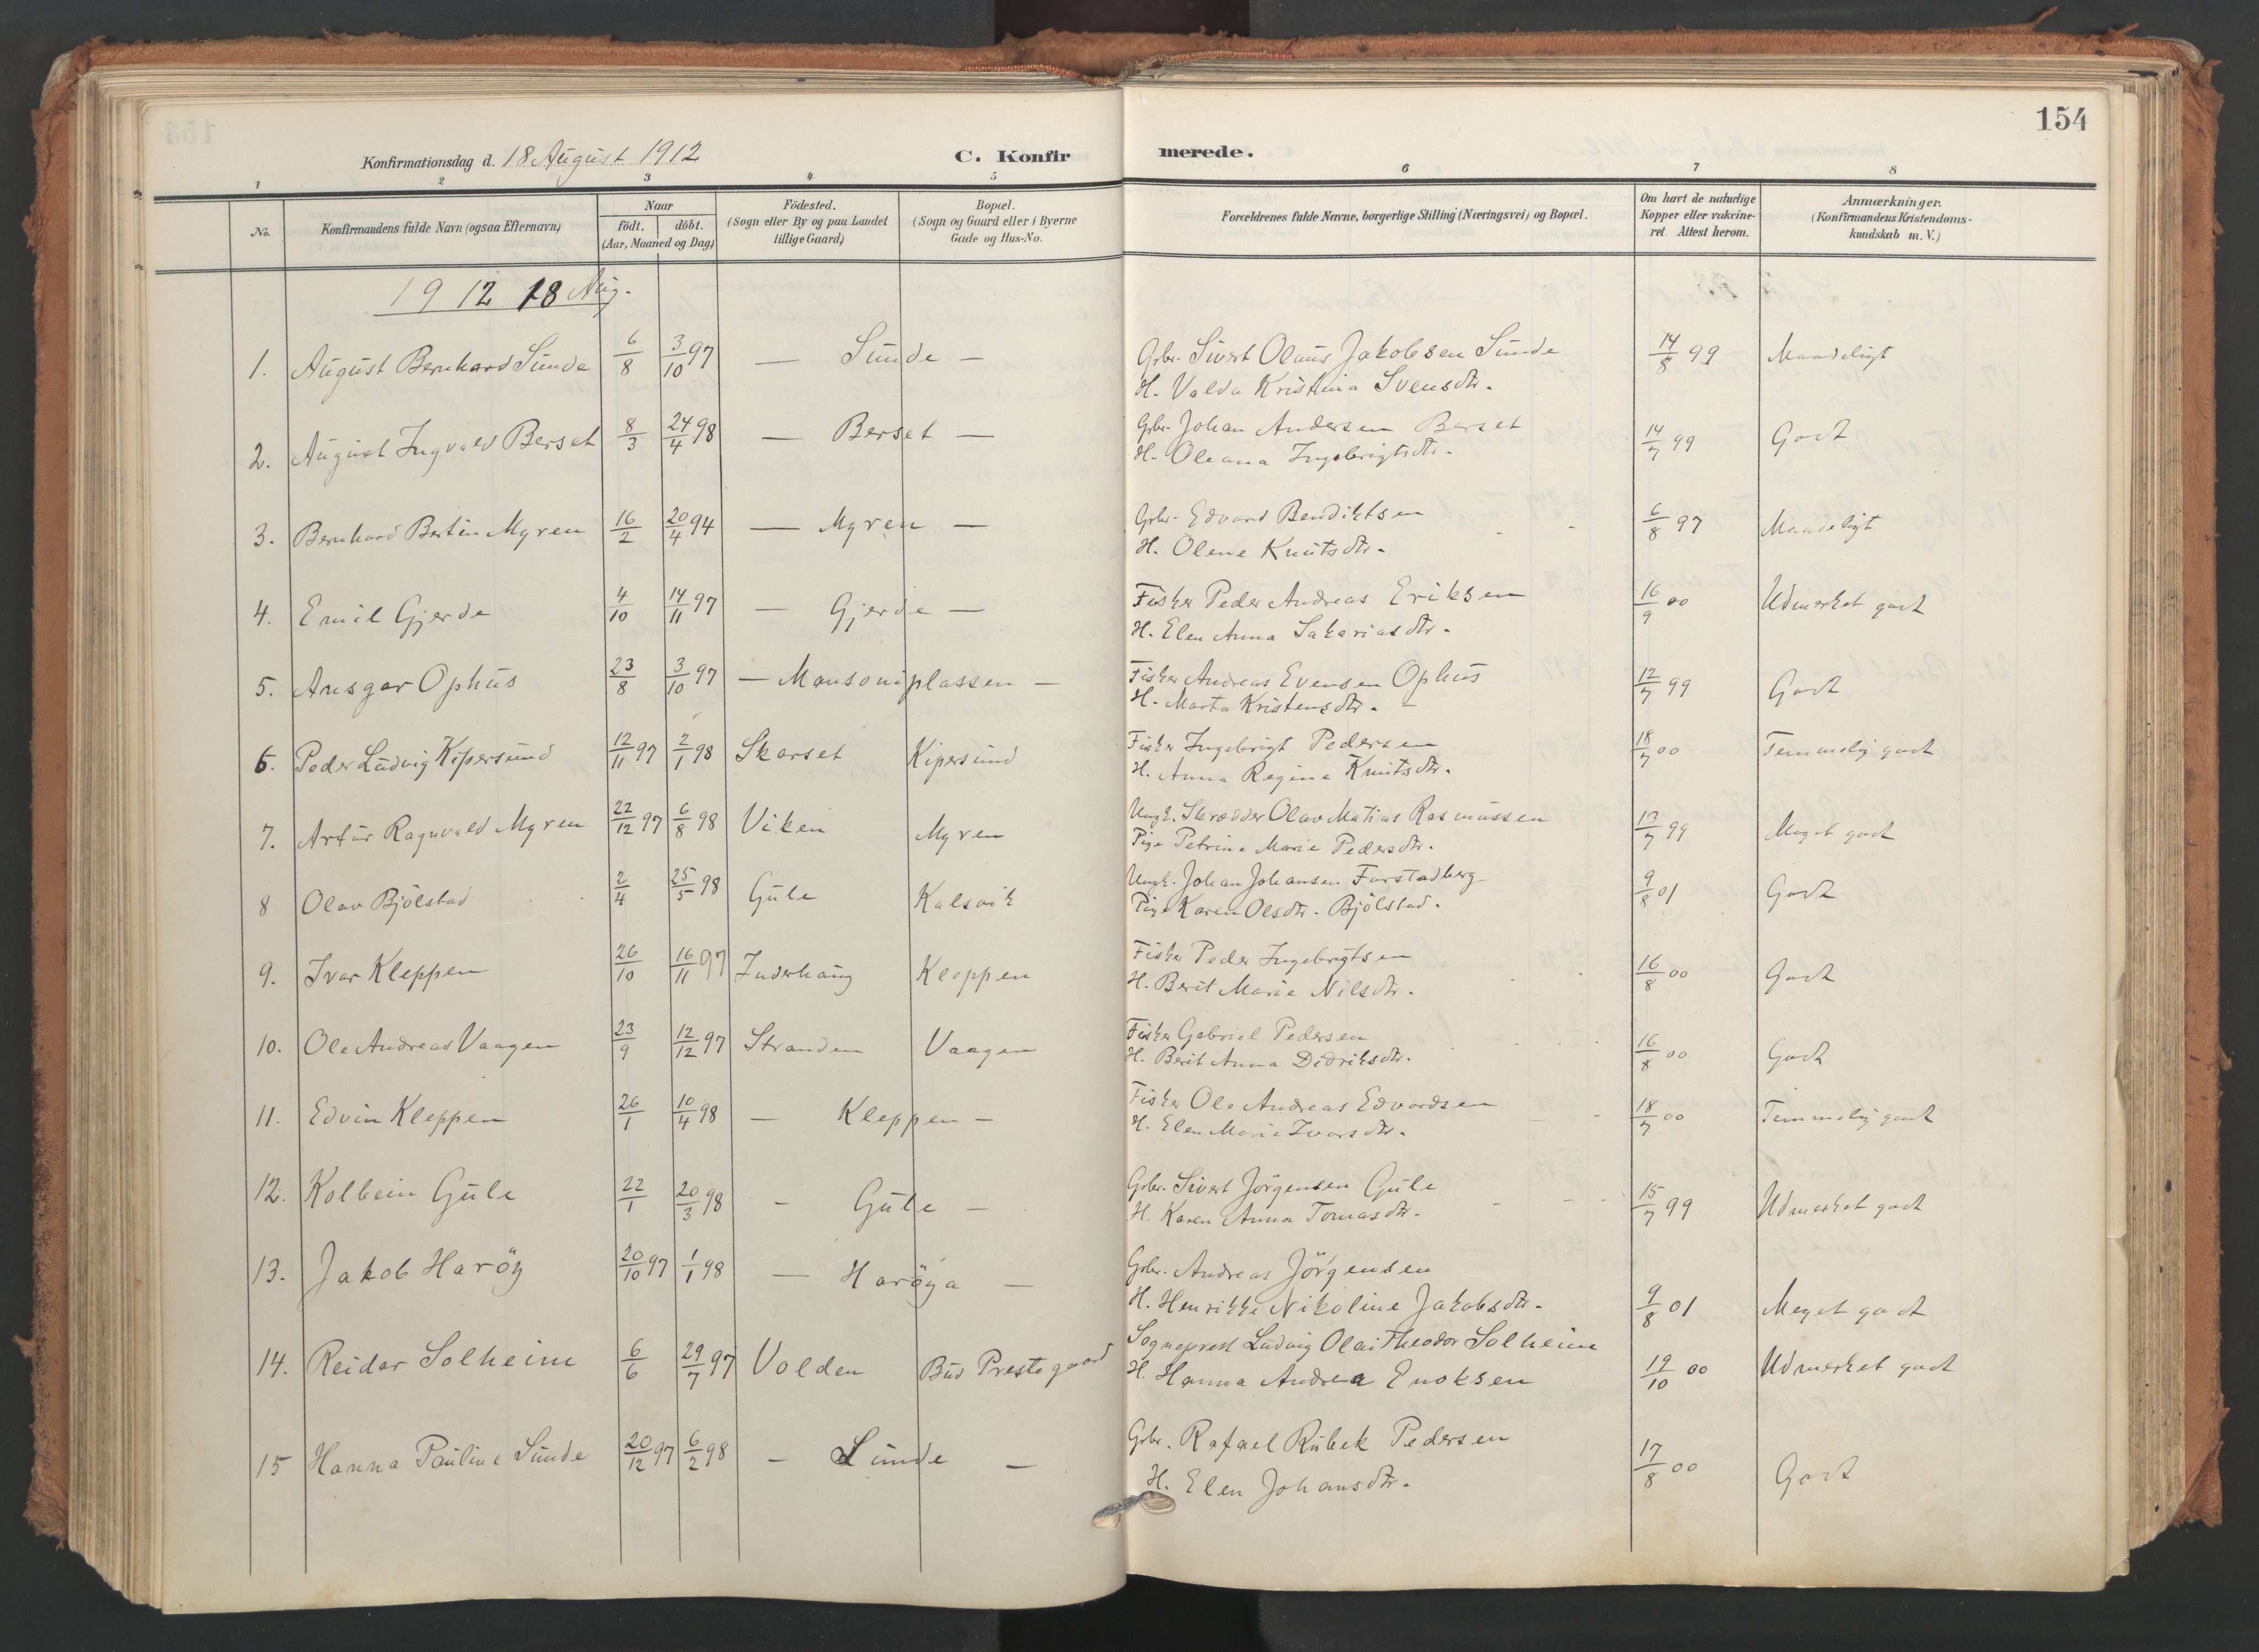 154
Konfirmationsdag d. 18 August 1912
C. Konfirmerede.
1 2 3 4 5 6 7 8
No.
Konfirmandens fulde Navn (ogsaa Efternavn)
Naar
födt. döbt.
(Aar, Maaned og Dag)
Födested.
(Sogn eller By og paa Landet
tillige Gaard)
Bopæl.
(Sogn og Gaard eller i Byerne
Gade og Hus-No.
Forældrenes fulde Navne, borgerlige Stilling (Næringsvei) og Bopæl.
Om havt de naturlige
Kopper eller vakcine-
ret. Attest herom.
Anmærkninger.
(Konfirmandens Kristendoms-
kundskab m. V.)
1912 18 Aug.
1. August Bernhard Sunde 6/8 3/10 97 — Sunde — Gbr. Sivert Olaus Jakobsen Sunde 14/8 99 Maadeligt
H. Valda Kristina Svensdtr.
2. August Ingvald Berset 8/3 24/4 98 — Berset — Gbr. Johan Andersen Berset 14/7 99 Godt
H. Oleana Ingebrigtsdtr.
3. Bernhard Bertin Myren 16/2 20/4 94 — Myren — Gbr. Edvard Bendiktsen 6/8 97 Maadeligt
H. Olene Knutsdtr.
4. Emil Gjerde 4/10 14/11 97 — Gjerde — Fisker Peder Andreas Eriksen 16/9 00 Udmerket godt
H. Elen Anna Sakariasdtr.
5. Ansgar Ophus 23/8 3/10 97 — Mansoniplassen — Fisker Andreas Evensen Ophus 12/7 99 Godt
H. Marta Kristensdtr.
6. Peder Ludvig Kipersund 12/11 97 2/1 98 Skarset Kipersund Fisker Ingebrigt Pedersen 18/7 00 Temmelig godt
H. Anna Regine Knutsdtr.
7. Artur Ragnvald Myren 22/12 97 6/8 98 Viken Myren Ungk. Skrædder Olav Matias Rasmussen 13/7 99 Meget godt
Pige Petrine Marie Pedersdtr.
8 Olav Bjölstad 2/4 25/5 98 Gule Kalsvik Ungk. Johan Johansen Farstadberg 9/8 01 Godt
Pige Karen Olsdtr. Bjölstad.
9. Ivar Kleppen 26/10 16/11 97 Inderhaug Kleppen Fisker Peder Ingebrigtsen 16/8 00 Godt
H. Berit Marie Nilsdtr.
10. Ole Andreas Vaagen 23/9 12/12 97 Stranden Vaagen Fisker Gabriel Pedersen 16/8 00 Godt
H. Berit Anna Didriksdtr.
11. Edvin Kleppen 26/1 10/4 98 — Kleppen — Fisker Ole Andreas Edvardsen 18/7 00 Temmelig godt
H. Elen Marie Ivarsdtr.
12. Kolbein Gule 22/1 20/3 98 — Gule — Gbr. Sivert Jörgensen Gule 15/7 99 Udmerket godt
H. Karen Anna Tomasdtr.
13. Jakob Haröy 20/10 97 1/1 98 — Haröya — Gbr. Andreas Jörgensen 9/8 01 Meget godt
H. Henrikke Nikoline Jakobsdtr.
14. Reidar Solheim 6/6 29/7 97 Volden Bud Prestegaard Sogneprest Ludvig Olai Theodor Solheim 19/10 00 Udmerket godt
H. Hanna Andrea Enoksen
15 Hanna Pauline Sunde 20/12 97 6/2 98 — Sunde — Gbr. Rafael Rubek Pedersen 17/8 00 Godt
H. Elen Johansdtr.